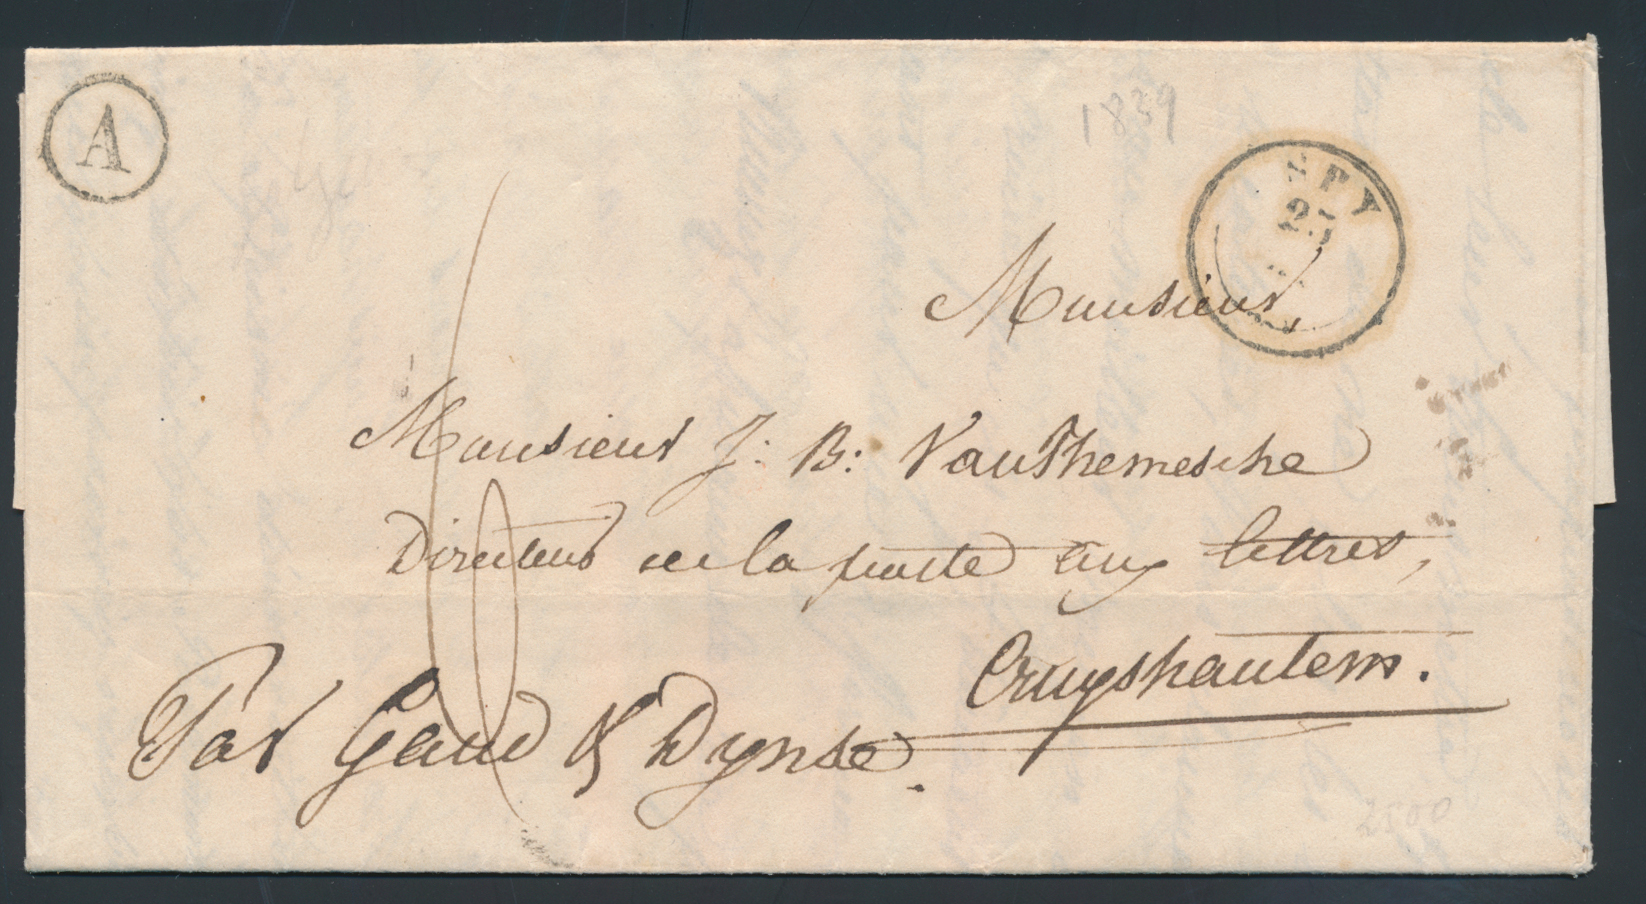 A
1839
SPY
25
Monsieur,
Monsieur J: B: VanThemesche
Directeur de la poste aux lettres,
Cruyshautem.
Par Gand & Dynse.
2500